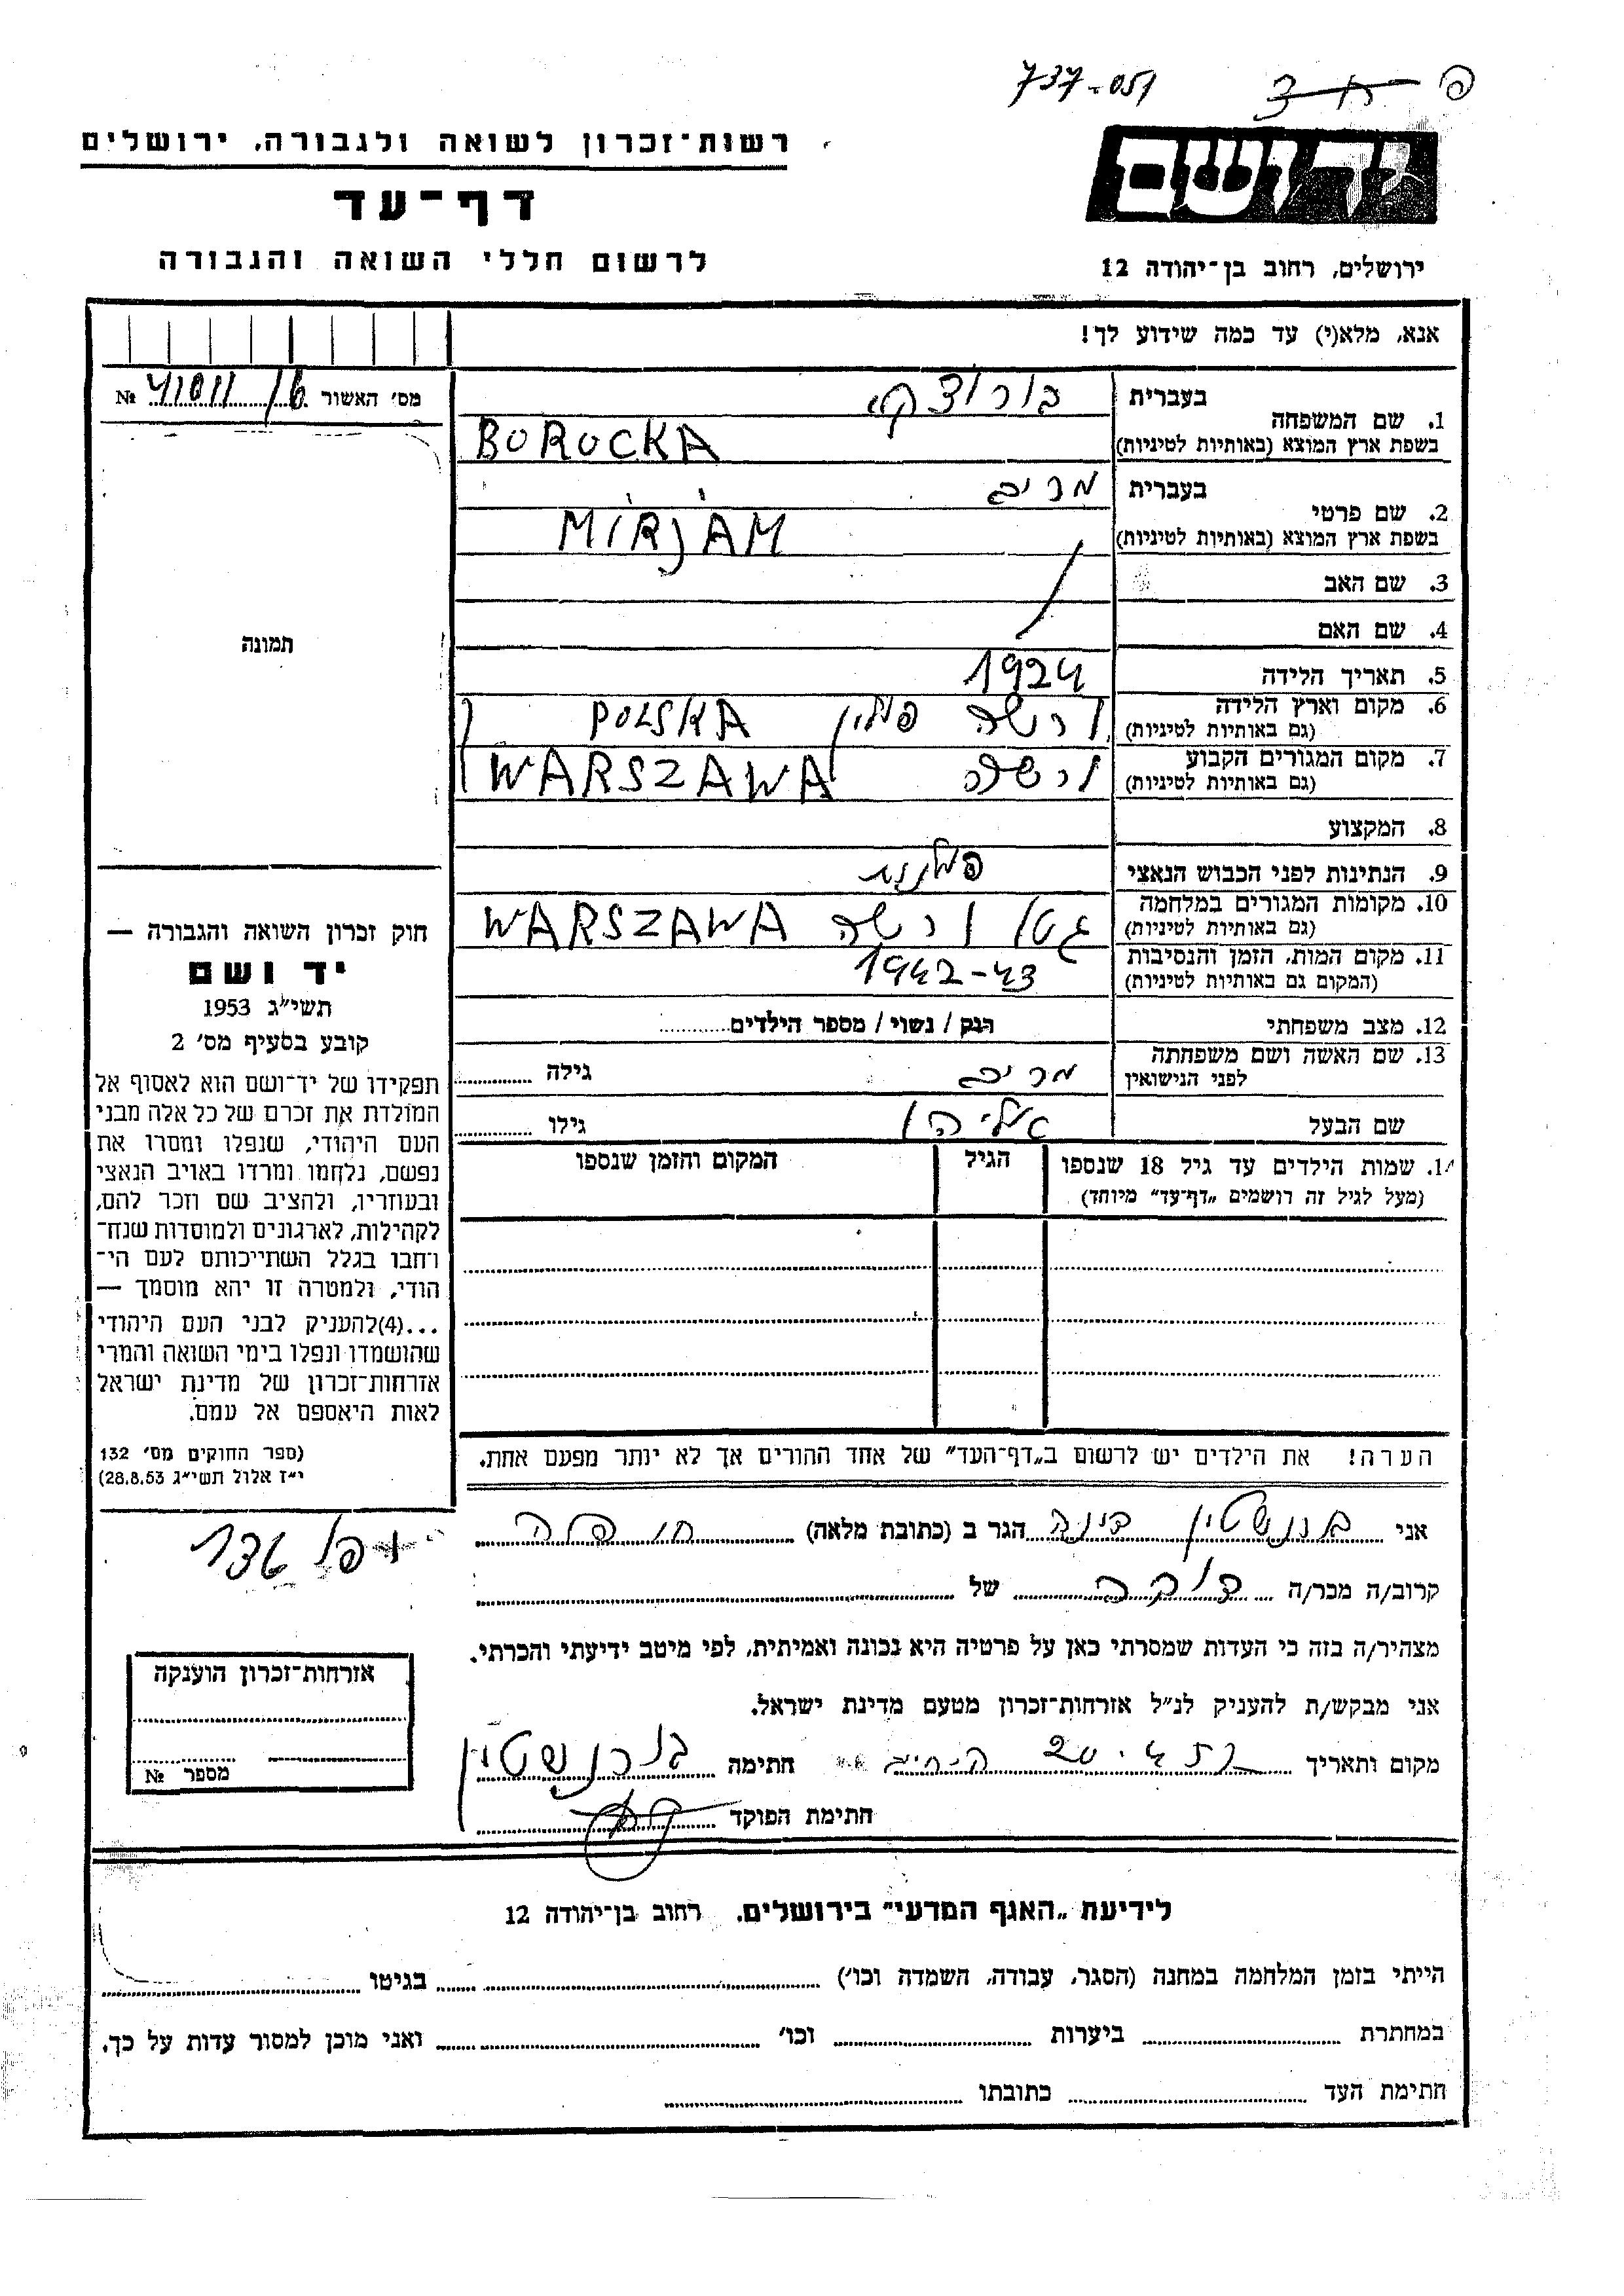 737-051
רשות־זכרון לשואה ולגבורה, ירושלים
דף־עד
לרשום חללי השואה והגבורה
יד ושם
ירושלים, רחוב בן־יהודה 12
אנא, מלא(י) עד כמה שידוע לך!
מס' האשור 16/41011 №
1. שם המשפחה
בעברית בורוצקי
בשפת ארץ המוצא (באותיות לטיניות) BOROCKA
2. שם פרטי
בעברית מרים
בשפת ארץ המוצא (באותיות לטיניות) MIRJAM
3. שם האב
4. שם האם
5. תאריך הלידה 1924
6. מקום וארץ הלידה
(גם באותיות לטיניות) ורשה פולין POLSKA
7. מקום המגורים הקבוע
(גם באותיות לטיניות) ורשה WARSZAWA
8. המקצוע
9. הנתינות לפני הכבוש הנאצי פולנית
10. מקומות המגורים במלחמה
(גם באותיות לטיניות) גטו ורשה WARSZAWA
11. מקום המות, הזמן והנסיבות
(המקום גם באותיות לטיניות) 1942-43
12. מצב משפחתי רוק / נשוי / מספר הילדים
13. שם האשה ושם משפחתה
לפני הנישואין מרים גילה
שם הבעל אליהו גילו
14. שמות הילדים עד גיל 18 שנספו
(מעל לגיל זה רושמים „דף־עד” מיוחד)
הגיל
המקום והזמן שנספו
תמונה
חוק זכרון השואה והגבורה —
יד ושם
תשי"ג 1953
קובע בסעיף מס' 2
תפקידו של יד־ושם הוא לאסוף אל
המולדת את זכרם של כל אלה מבני
העם היהודי, שנפלו ומסרו את
נפשם, נלחמו ומרדו באויב הנאצי
ובעוזריו, ולהציב שם וזכר להם,
לקהילות, לארגונים ולמוסדות שנח־
רחבו בגלל השתייכותם לעם הי־
הודי, ולמטרה זו יהא מוסמך —
...(4)להעניק לבני העם היהודי
שהושמדו ונפלו בימי השואה והמרי
אזרחות־זכרון של מדינת ישראל
לאות היאספם אל עמם.
(ספר החוקים מס' 132
י"ז אלול תשי"ג 28.8.53)
הערה! את הילדים יש לרשום ב„דף־העד” של אחד ההורים אך לא יותר מפעם אחת.
אני דינה הגר ב (כתובת מלאה) חיפה
קרוב/ה מכר/ה של
מצהיר/ה בזה כי העדות שמסרתי כאן על פרטיה היא נכונה ואמיתית, לפי מיטב ידיעתי והכרתי.
אני מבקש/ת להעניק לנ"ל אזרחות־זכרון מטעם מדינת ישראל.
מקום ותאריך חתימה
חתימת הפוקד
136
אזרחות־זכרון הוענקה
מספר №
לידיעת „האגף המדעי” בירושלים, רחוב בן־יהודה 12
הייתי בזמן המלחמה במחנה (הסגר, עבודה, השמדה וכו') בגיטו
במחתרת ביערות וכו' ואני מוכן למסור עדות על כך.
חתימת העד כתובתו